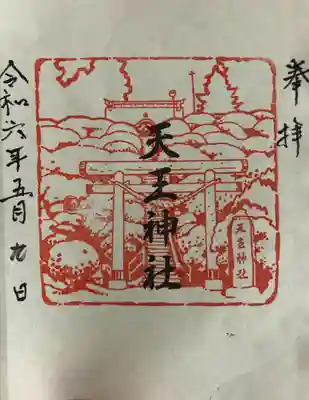 奉拝
天王神社
天王神社
令和六年五月九日